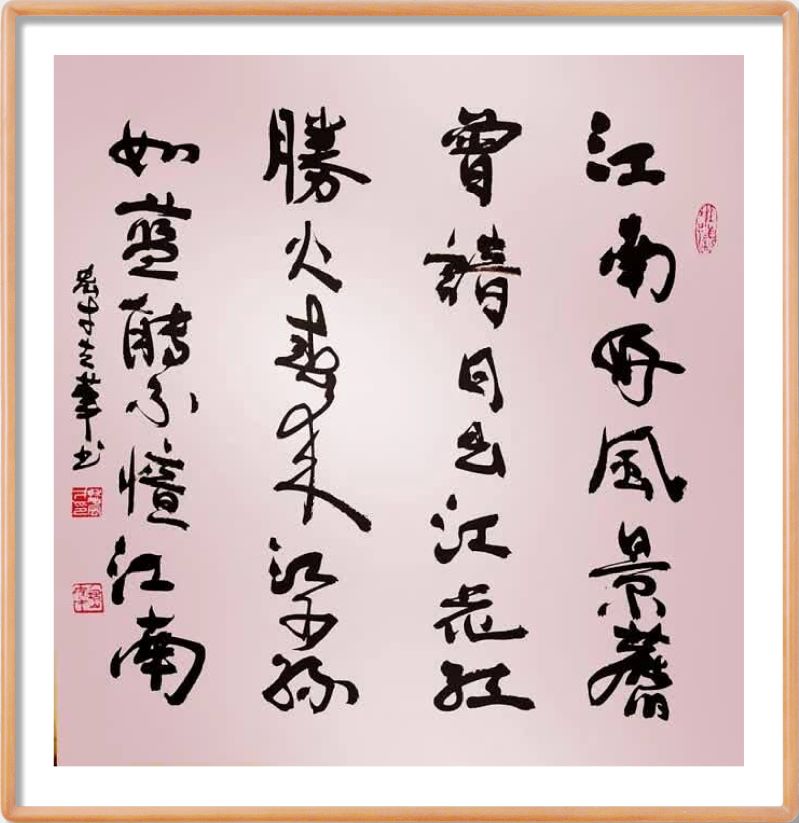 江南好風景舊
曾諳日出江花紅
勝火春來江水綠
如藍能不憶江南
华书